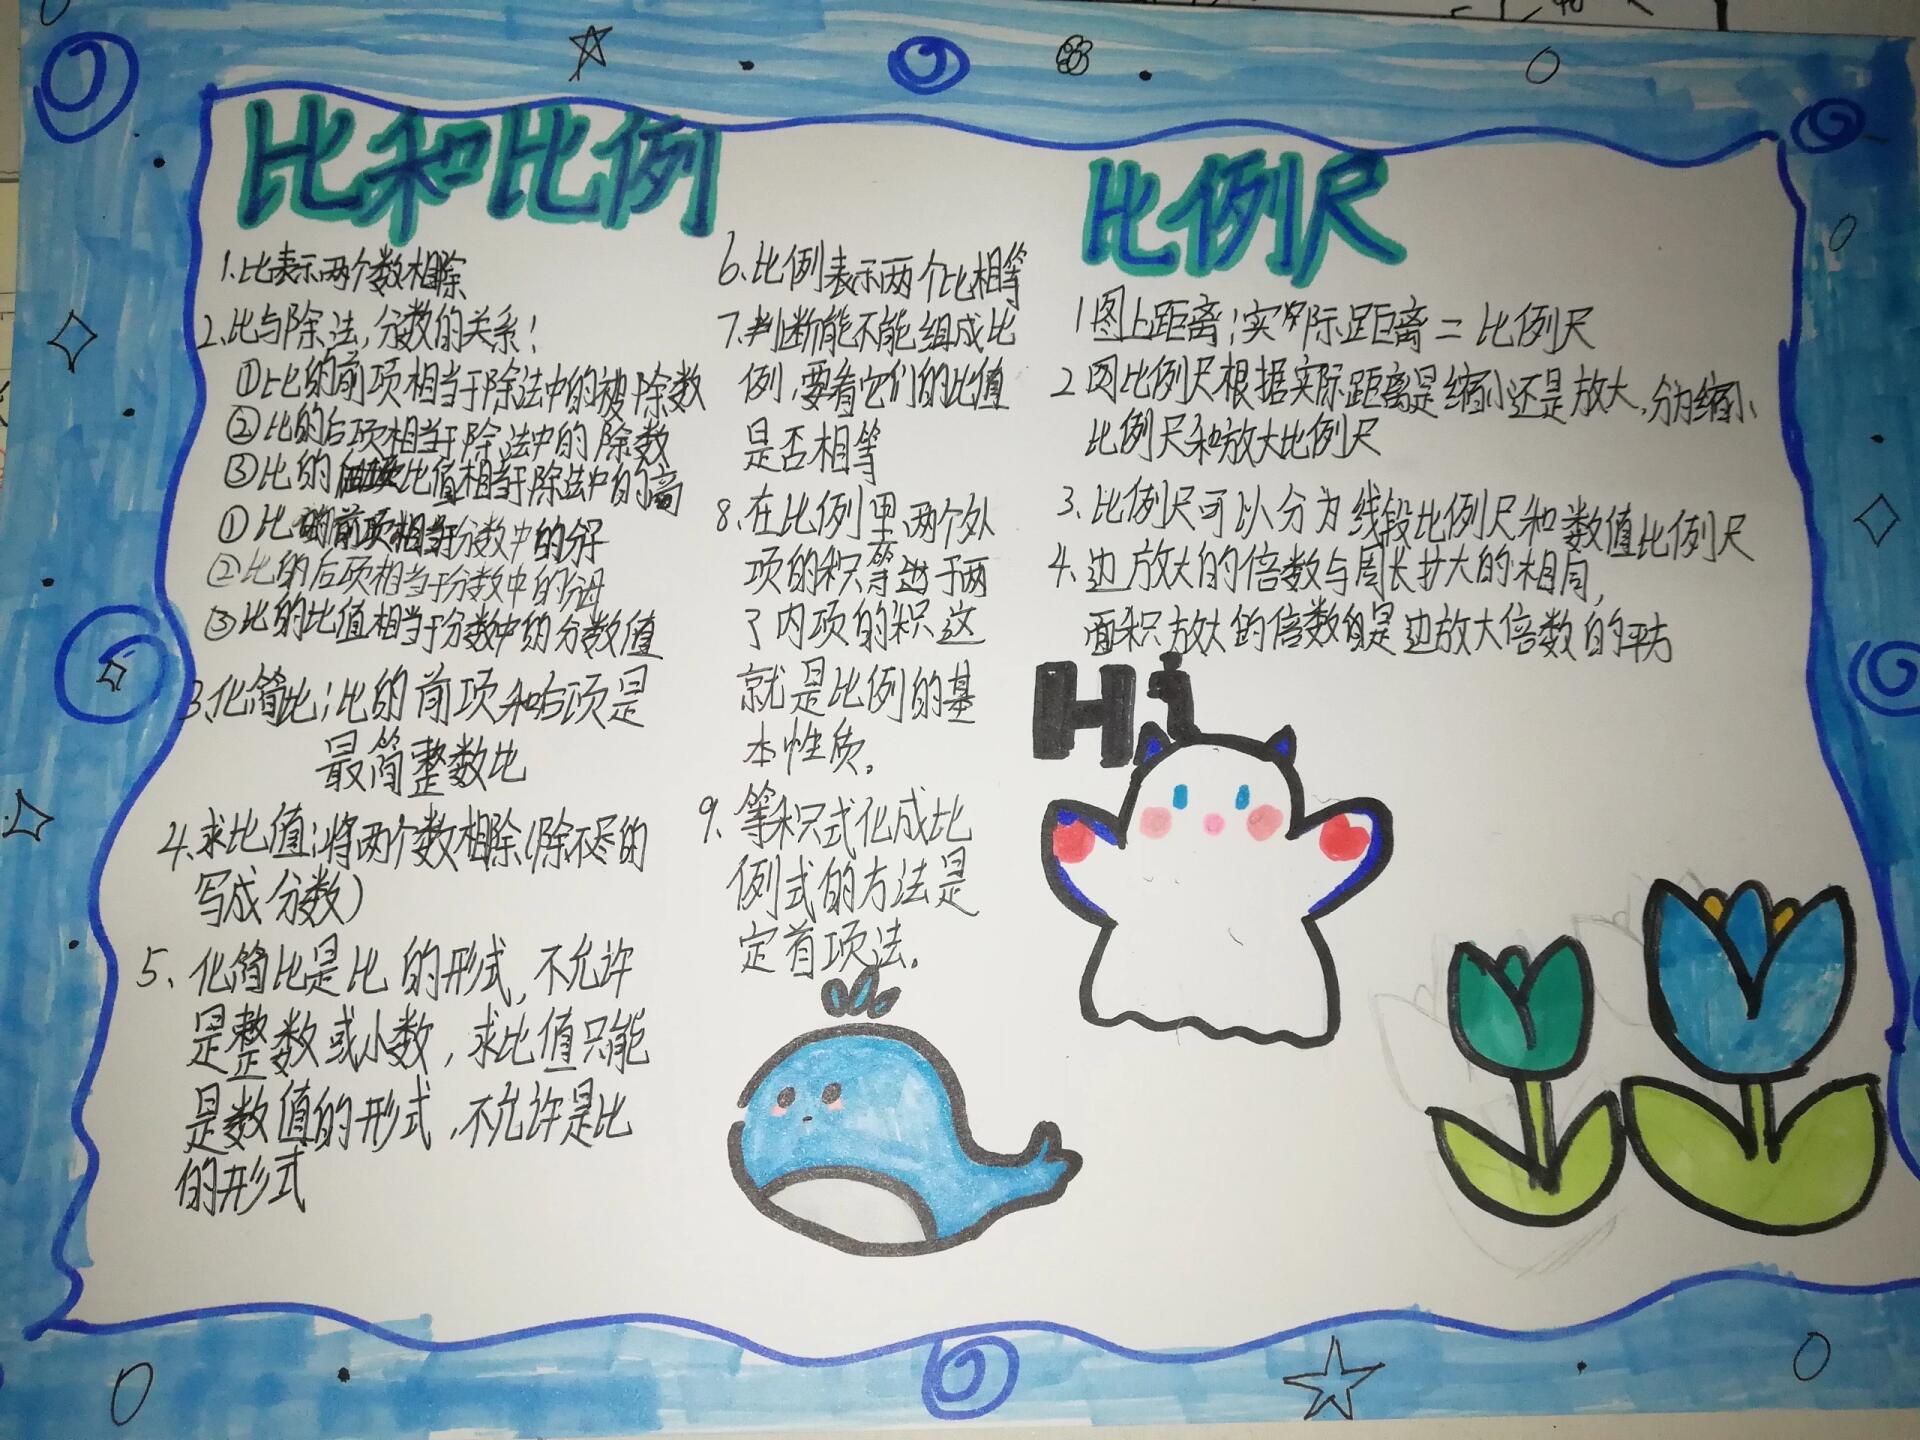 比和比例
1.比表示两个数相除
2.比与除法,分数的关系!
①比的前项相当于除法中的被除数
②比的后项相当于除法中的除数
③比的比值相当于除法中的商
①比的前项相当于分数中的分子
②比的后项相当于分数中的分母
③比的比值相当于分数中的分数值
3.化简比;比的前项和后项是
最简整数比
4.求比值;将两个数相除(除不尽的
写成分数)
5、化简比是比的形式,不允许
是整数或小数,求比值只能
是数值的形式,不允许是比
的形式
6.比例表示两个比相等
7.判断能不能组成比
例,要看它们的比值
是否相等
8.在比例里,两个外
项的积等于两
个内项的积这
就是比例的基
本性质。
9.等积式化成比
例式的方法是
定首项法。
比例尺
1图上距离;实际距离=比例尺
2图比例尺根据实际距离是缩小还是放大,分为缩小
比例尺和放大比例尺
3.比例尺可以分为线段比例尺和数值比例尺
4.边放大的倍数与周长扩大的相同,
面积放大的倍数是边放大倍数的平方
Hi